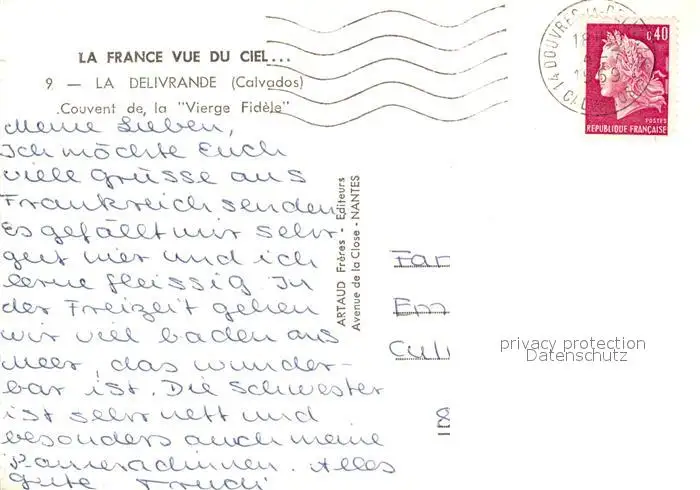 LA FRANCE VUE DU CIEL...
9 — LA DELIVRANDE (Calvados)
Couvent de la "Vierge Fidèle"
Meine Lieben,
Ich möchte Euch
viele Grüsse aus
Frankreich senden
Es gefällt mir sehr
gut hier und ich
lerne fleissig. In
der Freizeit gehen
wir viel baden ans
Meer, das wunder-
bar ist. Die Schwester
ist sehr nett und
besonders auch meine
Kameradinnen. Alles
Gute Trudi
ARTAUD Frères - Editeurs
Avenue de la Close - NANTES
0,40
POSTES
REPUBLIQUE FRANÇAISE
Fam
Em
Cul
privacy protection
Datenschutz